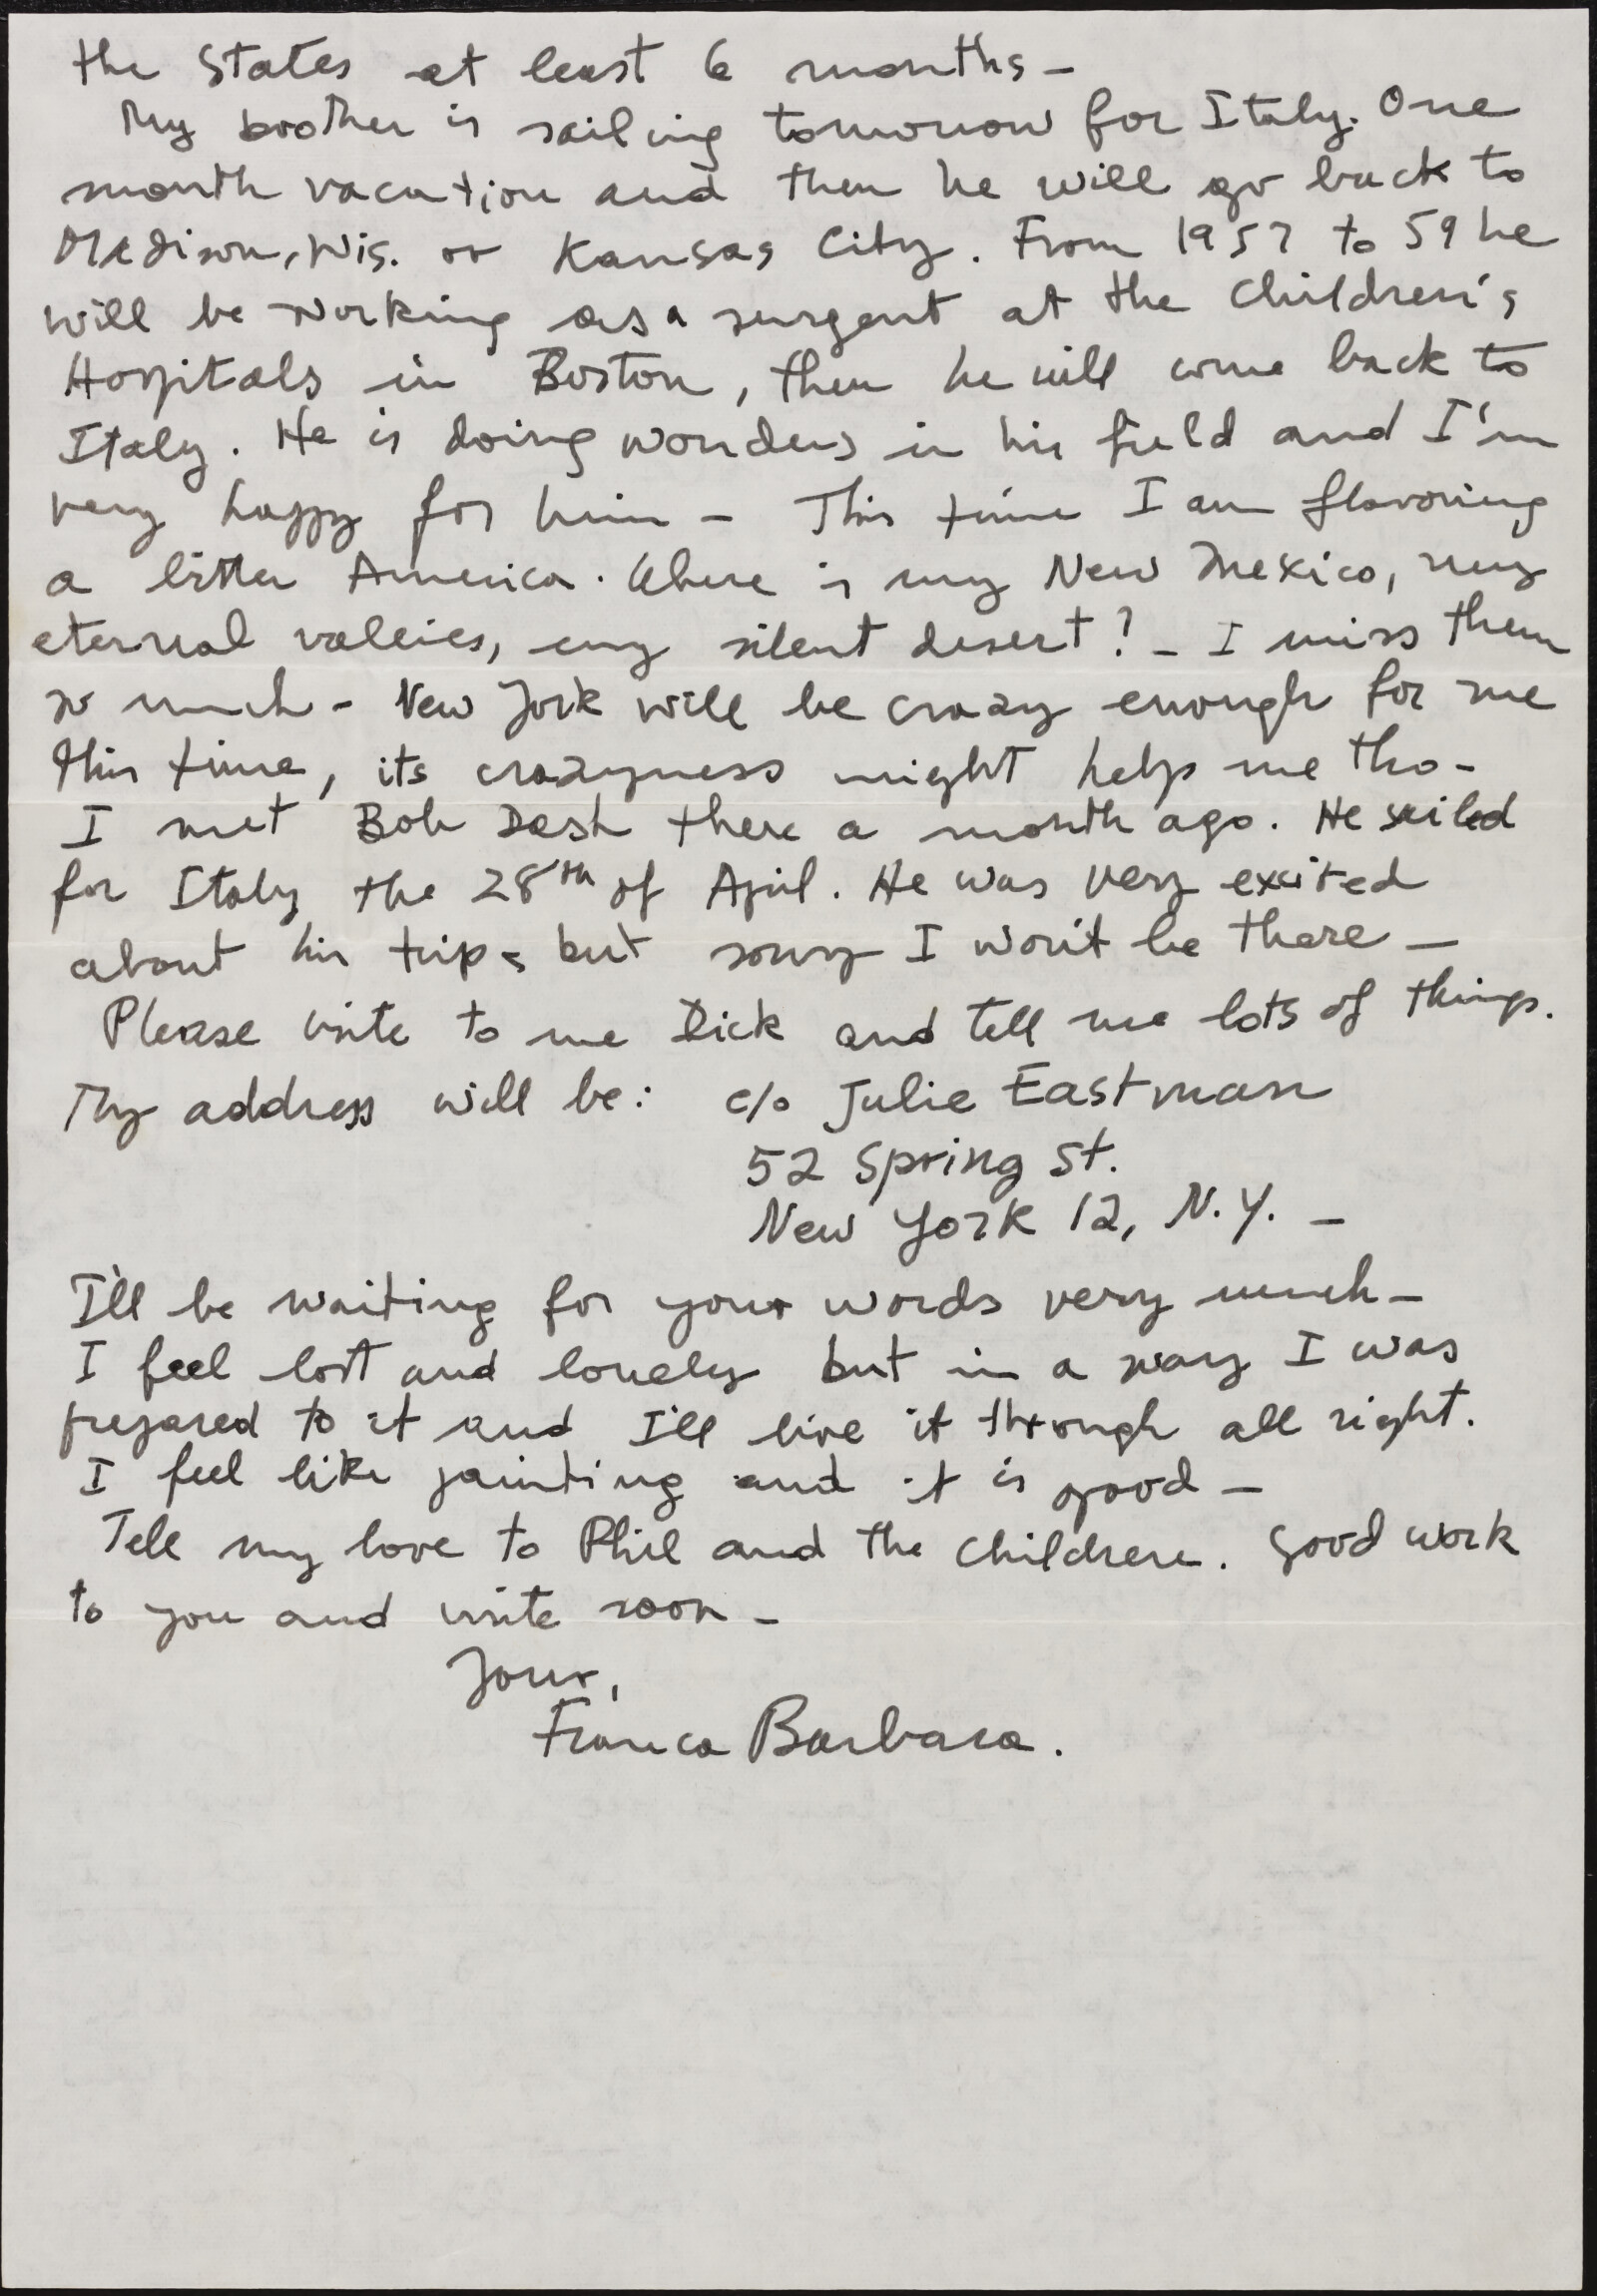 the States at least 6 months –
My brother is sailing tomorrow for Italy. One
month vacation and then he will go back to
Madison, Wis. or Kansas City. From 1957 to 59 he
will be working as a surgent at the Children's
Hospitals in Boston, then he will come back to
Italy. He is doing wonders in his field and I'm
very happy for him – This time I am flavoring
a bitter America. Where is my New Mexico, my
eternal vallies, my silent desert? – I miss them
so much – New York will be crazy enough for me
this time, its crazyness might help me tho –
I met Bob Dash there a month ago. He sailed
for Italy the 28th of April. He was very excited
about his trip, but sorry I won't be there –
Please write to me Dick and tell me lots of things.
My address will be: c/o Julie Eastman
52 Spring St.
New York 12, N.Y. –
I'll be waiting for your words very much –
I feel lost and lonely but in a way I was
prepared to it and I'll live it through all right.
I feel like painting and it is good –
Tell my love to Phil and the children. Good work
to you and write soon –
Your,
Franca Barbara.